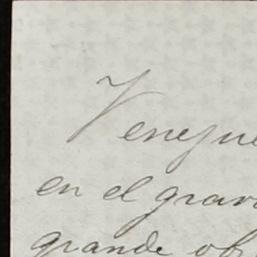 Venezue
en el grav
grande obr